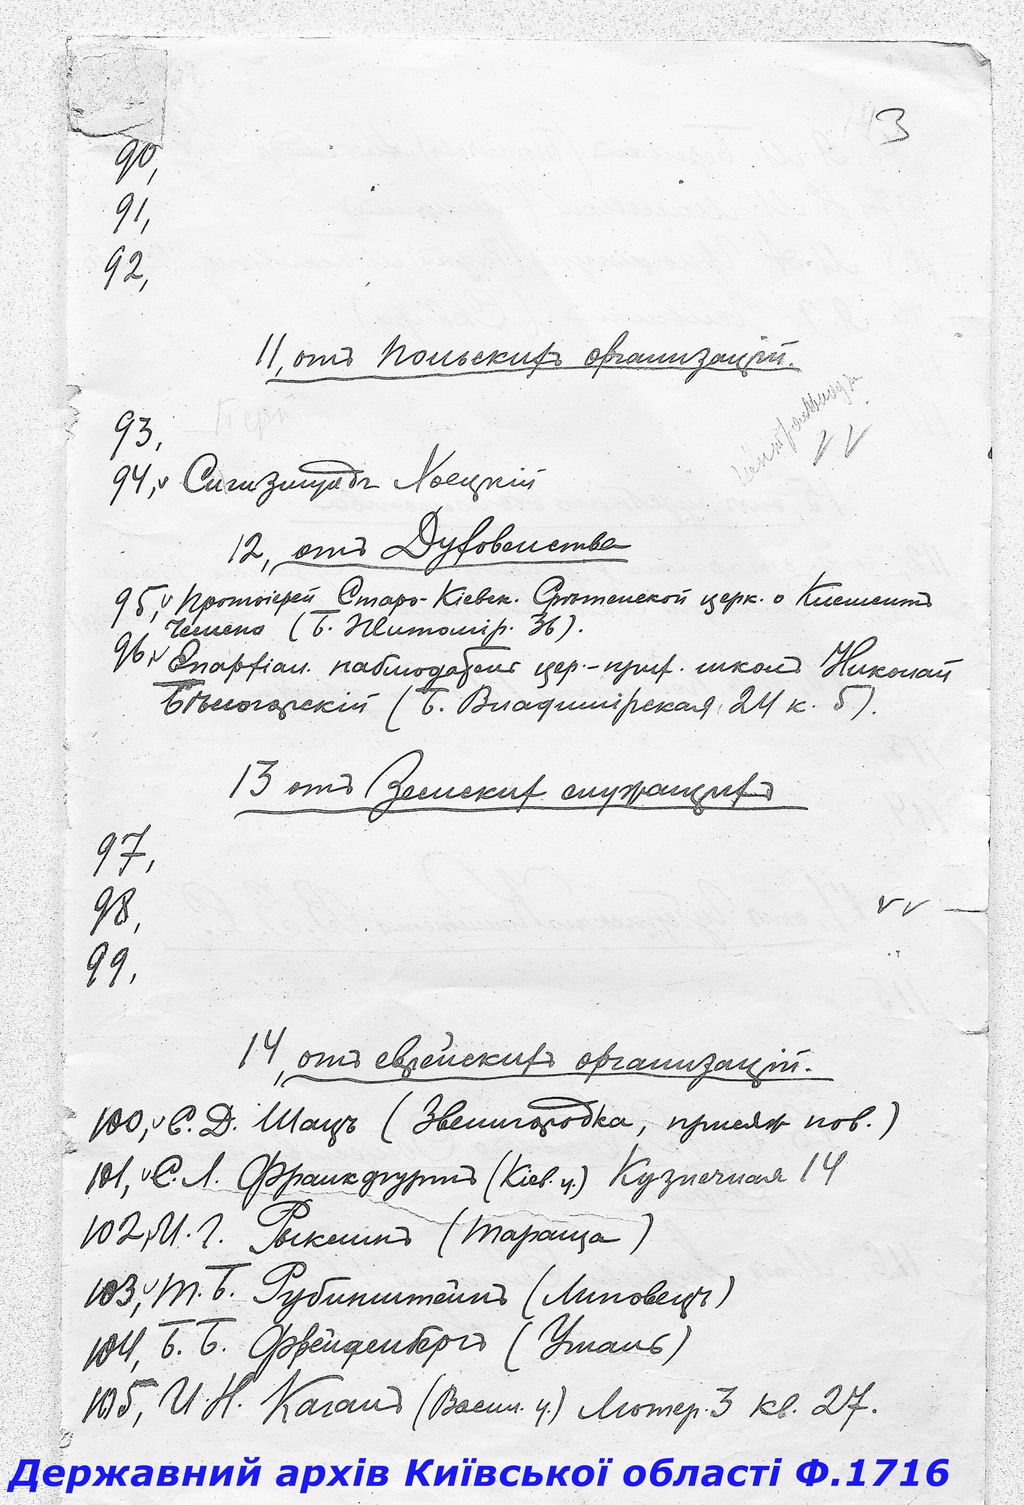 3
90,
91,
92,
11, отъ Польскихъ организацій.
93,
94, v Сигизмундъ Хоецкій
12, отъ Духовенства
95, v Протоіерей Старо-Кіевск. Срѣтенской церк. о Климентъ
(Б. Житомір. 36).
96, v Епархіал. наблюдатель цер.-прих. школъ Николай
Бѣлогорскій (Б. Владимірская 24 к. 5).
13 отъ Земскихъ служащихъ
97,
98,
99,
14, отъ еврейскихъ организацій.
100, v С. Д. Шацъ (Звенигородка, присяж пов.)
101, v С. Л. Франкфуртъ (Кіев. у.) Кузнечная 14
102, И. Г. Рыклинъ (Тараща)
103, v М. Б. Рубинштейнъ (Липовецъ)
104, Б. Б. (Умань)
105, И. Н. Каганъ (Васил. у.) Лютер. 3 кв. 27.
Державний архів Київської області Ф.1716